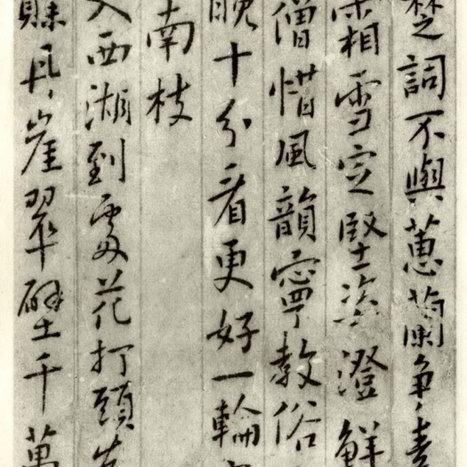 楚詞不與蕙蘭爭春
霜雪定堅姿澄鮮
僧惜風韻寧教俗
晚十分看更好一輪
南枝
入西湖到處花打頭
賦丹崖翠壁千萬